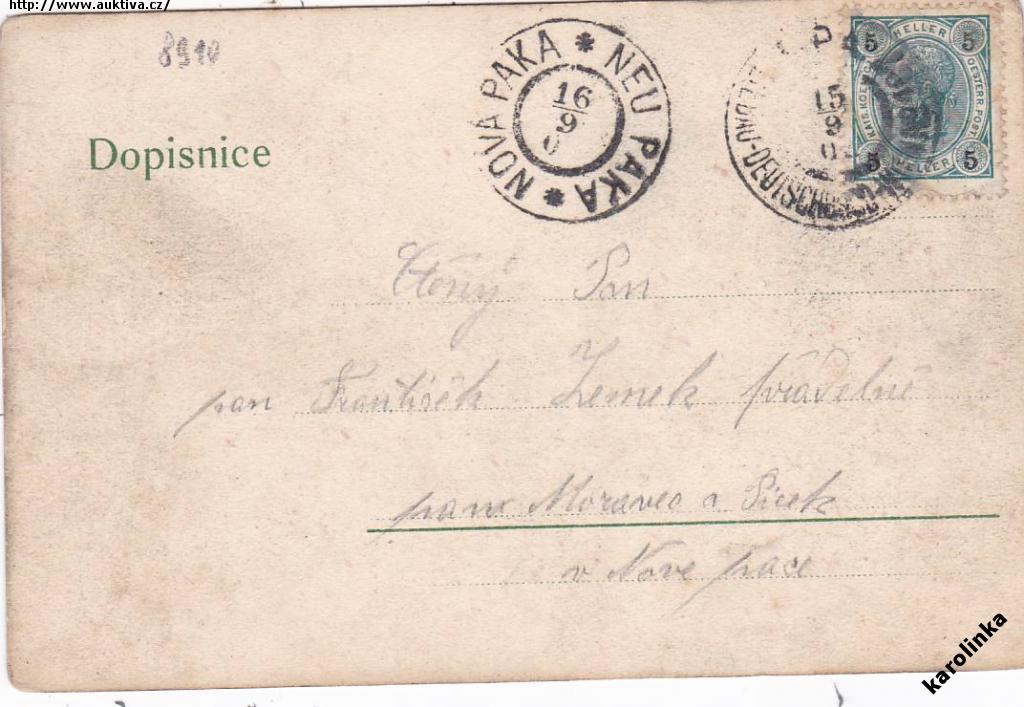 http://www.auktiva.cz/
8910
Dopisnice
NOVÁ PAKA * NEU PAKA *
16
9
15
9
5 HELLER 5
KAIS. KOE. OESTERR. POST.
5 HELLER 5
Ctěný Pan
pan František Zemek
pane Moravec a
v Nové pace
karolinka